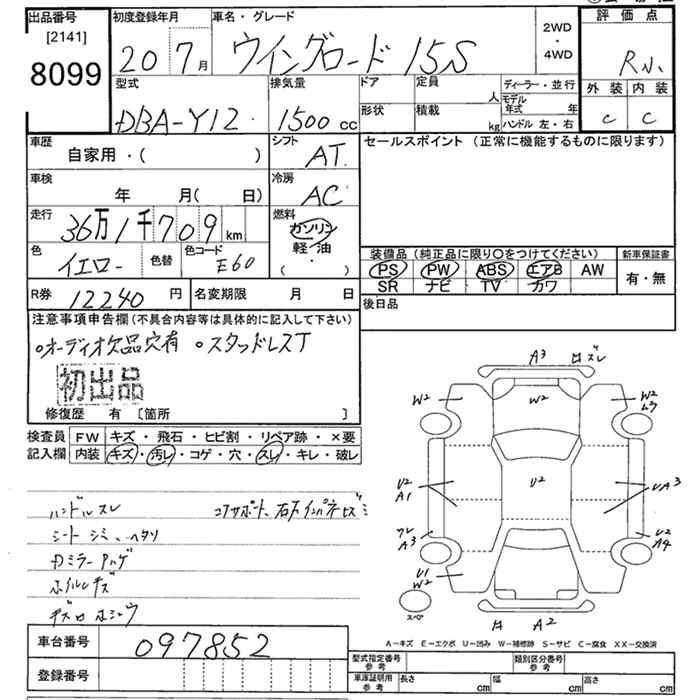 出品番号
[2141]
8099
初度登録年月
20 7月
車名・グレード
ウイングロード 15S
2WD
・
4WD
評価点
R小
外装 内装
C C
型式
DBA-Y12
排気量
1500cc
ドア
形状
定員
人
積載
kg
ディーラー・並行
モデル年式 年
ハンドル 左・右
車歴
自家用・( )
シフト
AT
セールスポイント (正常に機能するものに限ります)
車検
年 月( 日)
冷房
AC
走行
36万1千709km
燃料
ガソリン
軽油
・
( )
色
イエロー
色替
色コード
E60
装備品 (純正品に限り〇をつけてください)
PS PW ABS エアB AW
SR ナビ TV カワ
新車保証書
有・無
R券 12240円
名変期限 月 日
後日品
注意事項申告欄 (不具合内容等は具体的に記入して下さい)
オーディオ欠品穴有 スタッドレスT
初出品
修復歴 有 [箇所 ]
検査員記入欄
FW キズ・飛石・ヒビ割・リペア跡・×要
内装 キズ・汚レ・コゲ・穴・スレ・キレ・破レ
ハンドルスレ
コアサポート、右インパネヒズミ
シートシミ、ヘタリ
ホイルキズ
A3
W2 W2 W2
U2 U2 UA3
A1
A3
U2
A4
U1
W2
スペア
A2
A-キズ E-エクボ U-凹み W-補修跡 S-サビ C-腐食 XX-交換済
車台番号
097852
登録番号
型式指定番号 参考
類別区分番号 参考
車庫証明用 参考
長さ cm 幅 cm 高さ cm